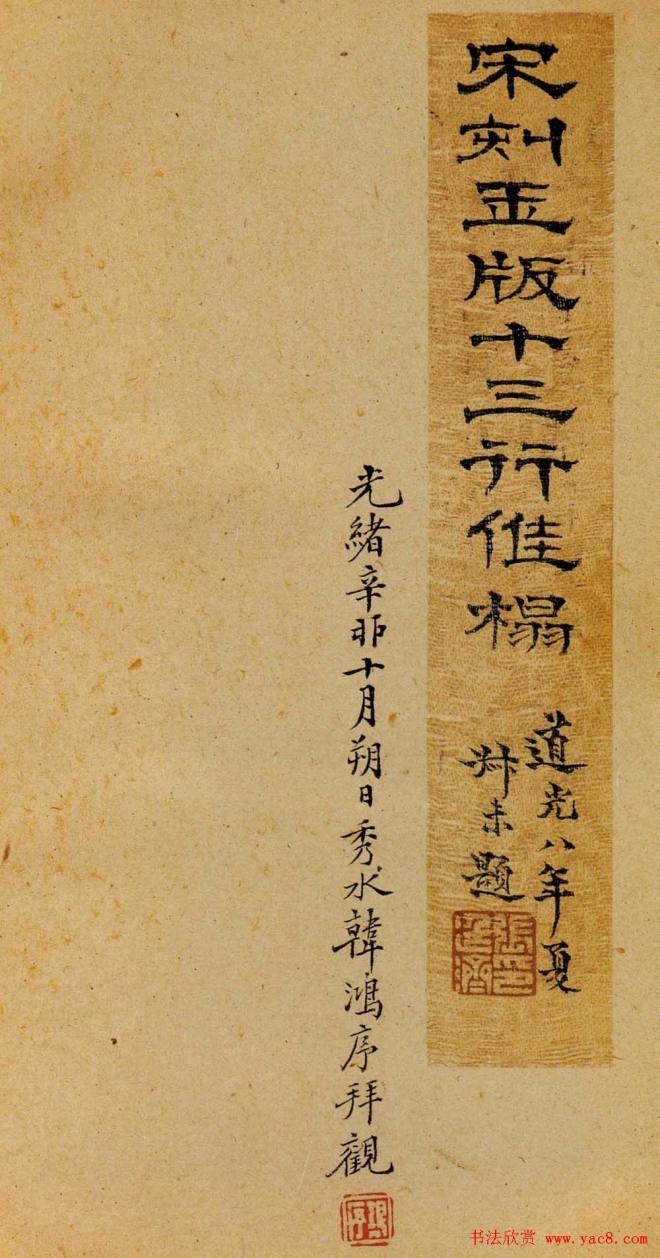 宋刻玉版十三行佳榻
道光八年夏
叔未題
張廷濟
光緒辛卯十月朔日秀水韓鴻序拜觀
书法欣赏 www.yac8.com